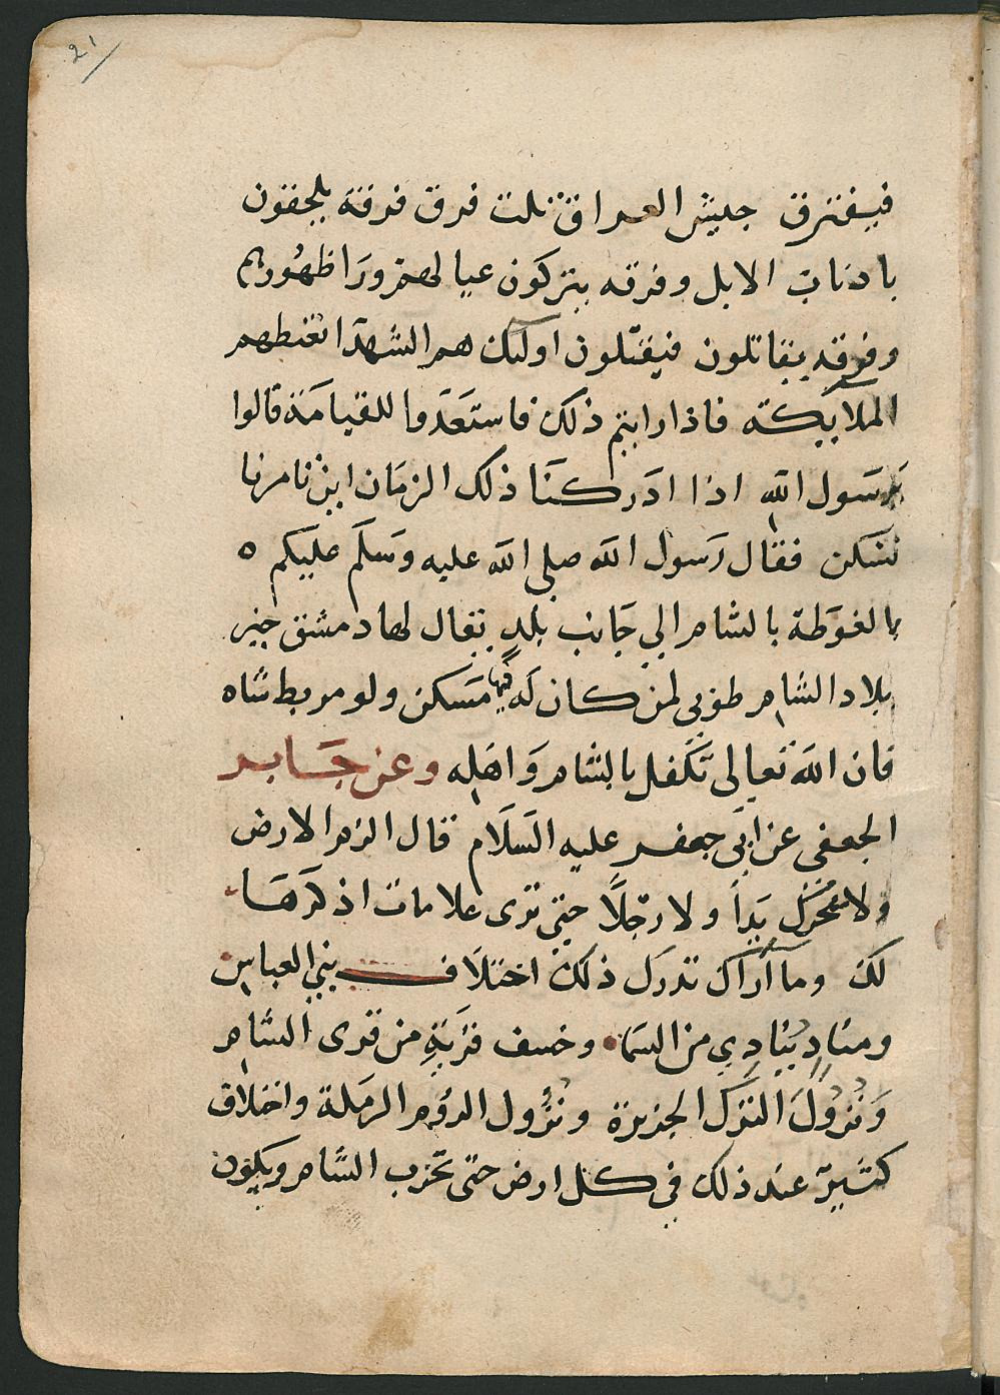 21
فيفترق جيش العراق ثلث فرق فرقة يلحقون
باذناب الابل وفرقه يتركون عيالهم ورا ظهورهم
وفرقه يقاتلون فيقتلون اوليك هم الشهدا تغبطهم
الملاييكته فاذا رايتم ذلك فاستعدوا للقيامة قالوا
يرسول الله اذا ادركنا ذلك الزمان اين تامرنا
نسكن فقال رسول الله صلى الله عليه وسلم عليكم ه
بالغوطة بالشام الي جانب بلد يقال لها دمشق خير
بلاد الشام طوبي لمن كان له فيها مسكن ولو مربط شاه
فان الله تعالى تكفل بالشام واهله وعن جابر
الجعفي عن ابي جعفر عليه السلام قال الزم الارض
ولا تحرك يداً ولا رجلاً حتى ترى علامات اذكرها
لك وما أراك تدرك ذلك اختلاف بني العباس
ومنادٍ ينادي من السما وخسف قرية من قرى الشام
ونزول الترك الجزيرة ونزول الروم الرملة واختلاف
كثير عند ذلك في كل ارض حتى تخرب الشام ويكون